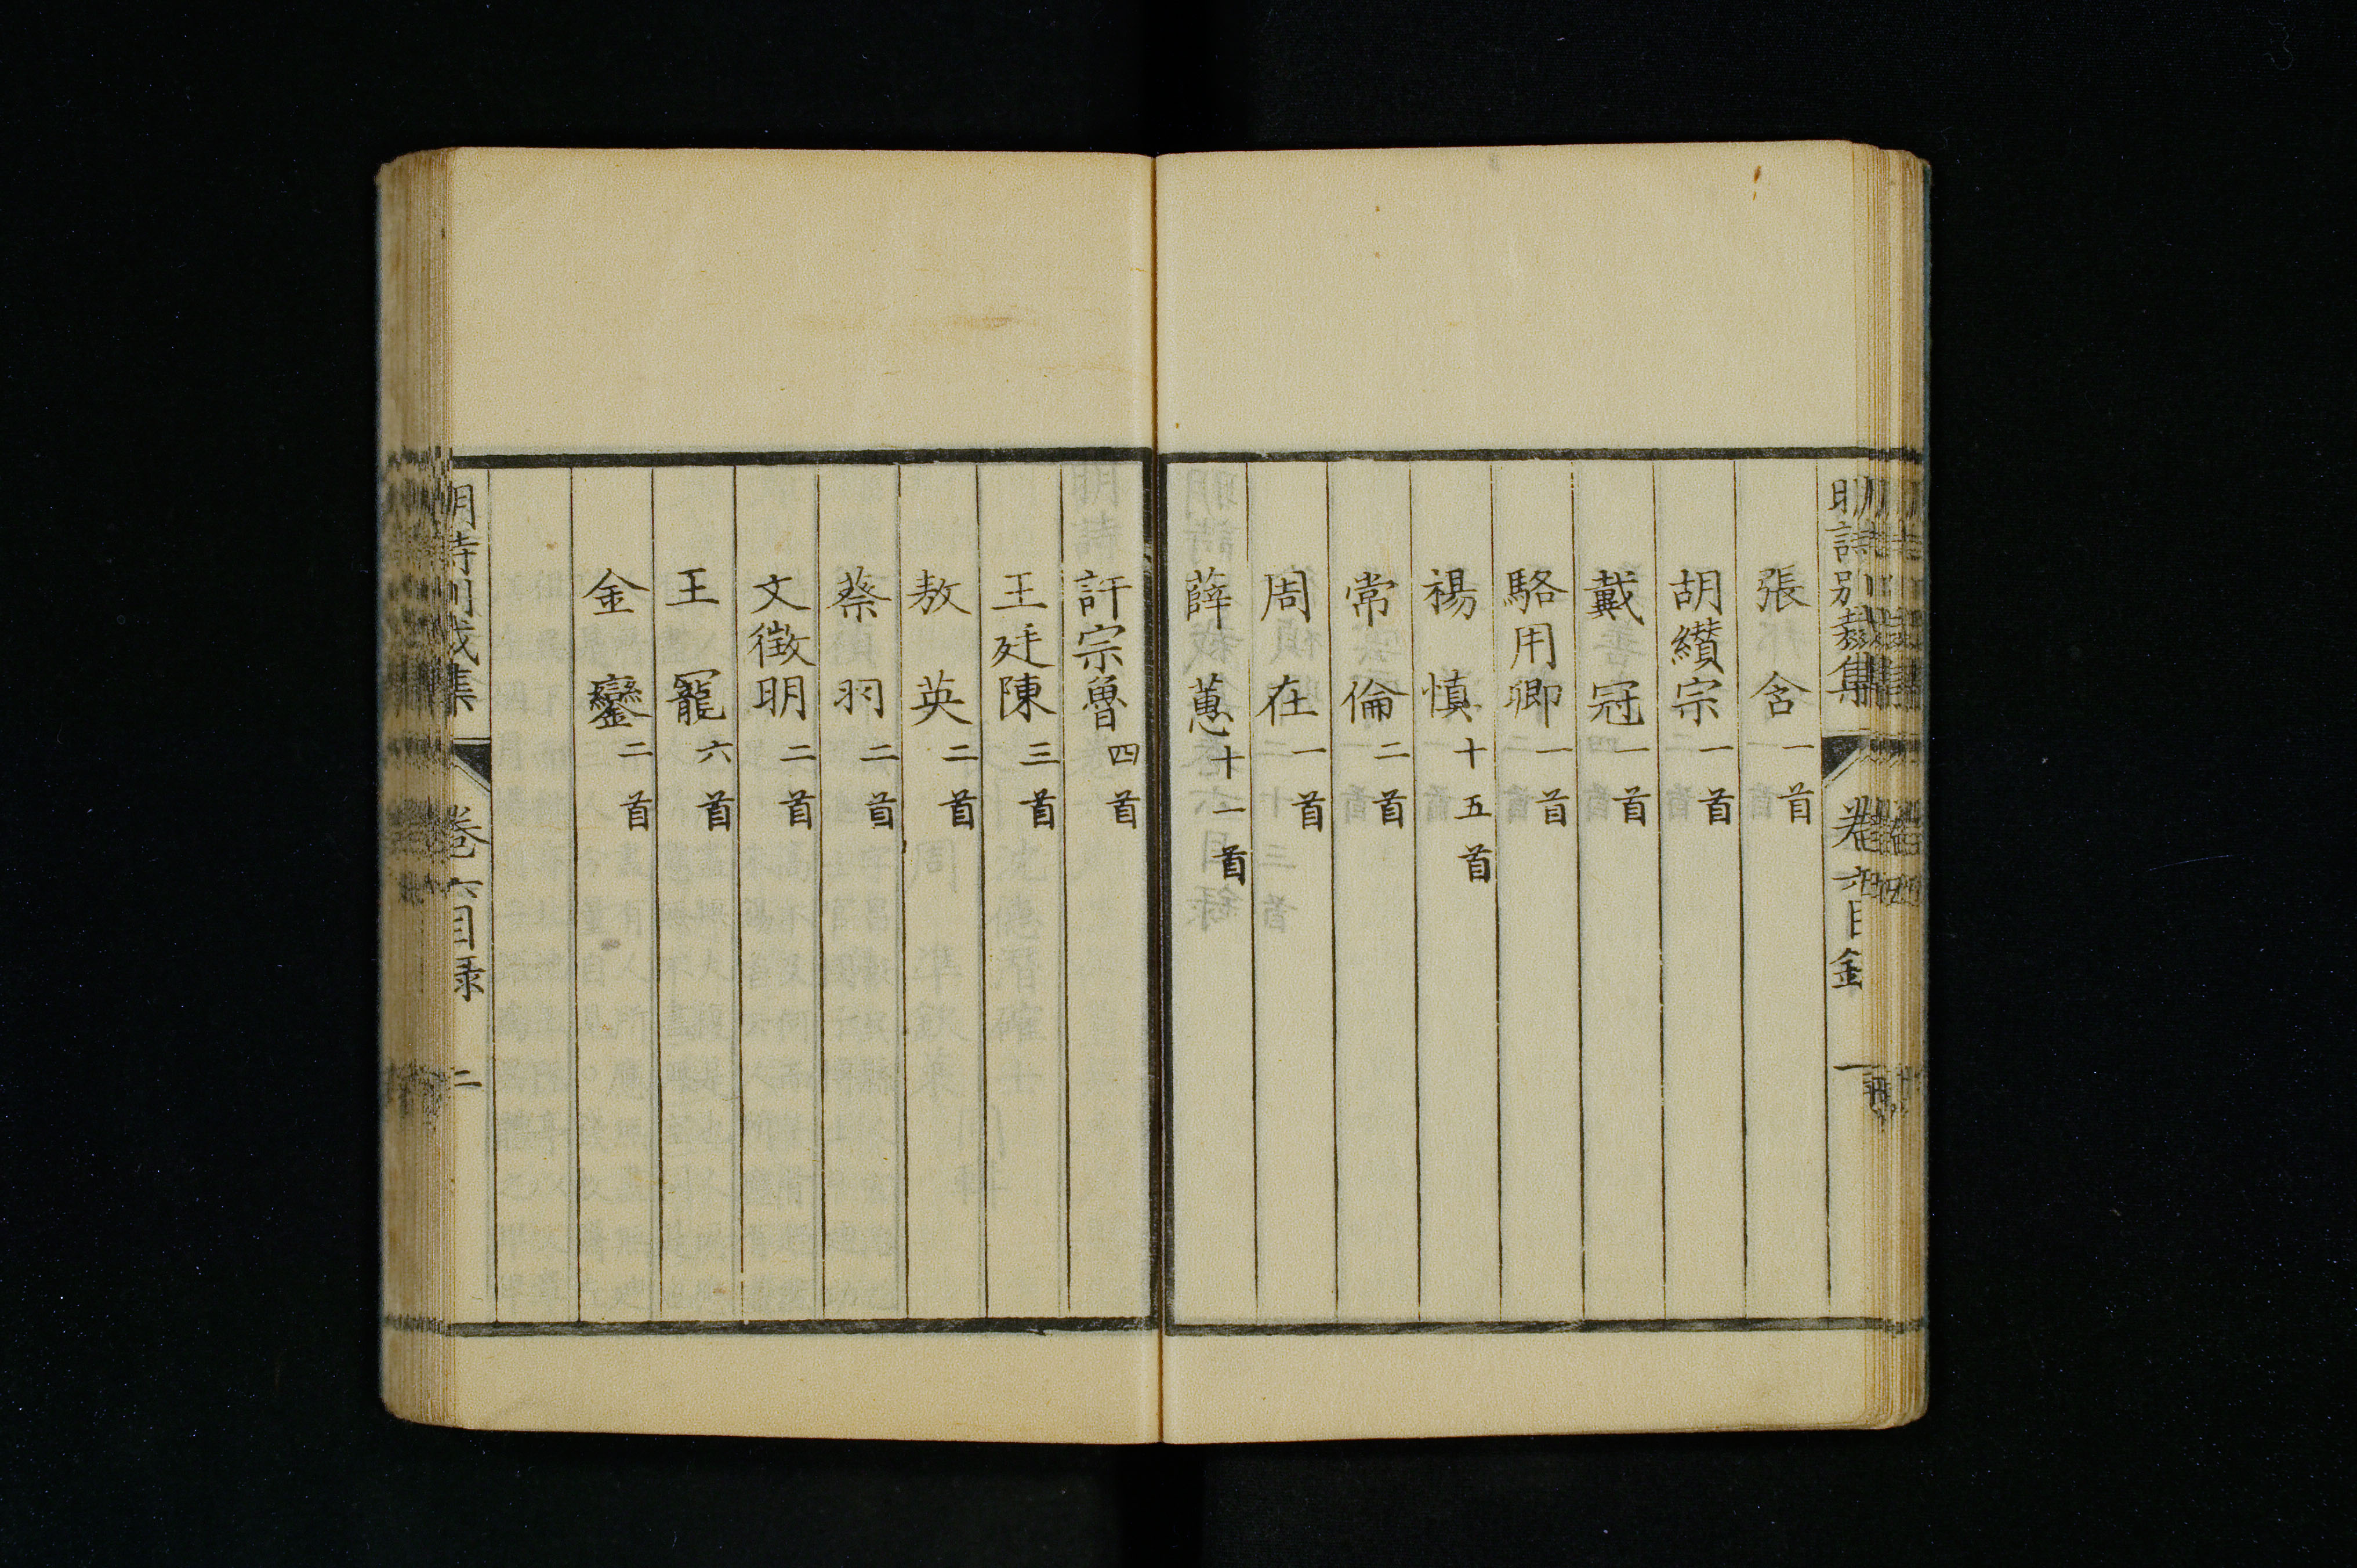 明詩別裁集 卷六目錄 一
張含一首
胡纘宗一首
戴冠一首
駱用卿一首
楊慎十五首
常倫二首
周在一首
薛蕙十一首
許宗魯四首
王廷陳三首
敖英二首
蔡羽二首
文徵明二首
王寵六首
金鑾二首
明詩別裁集 卷六目錄 二